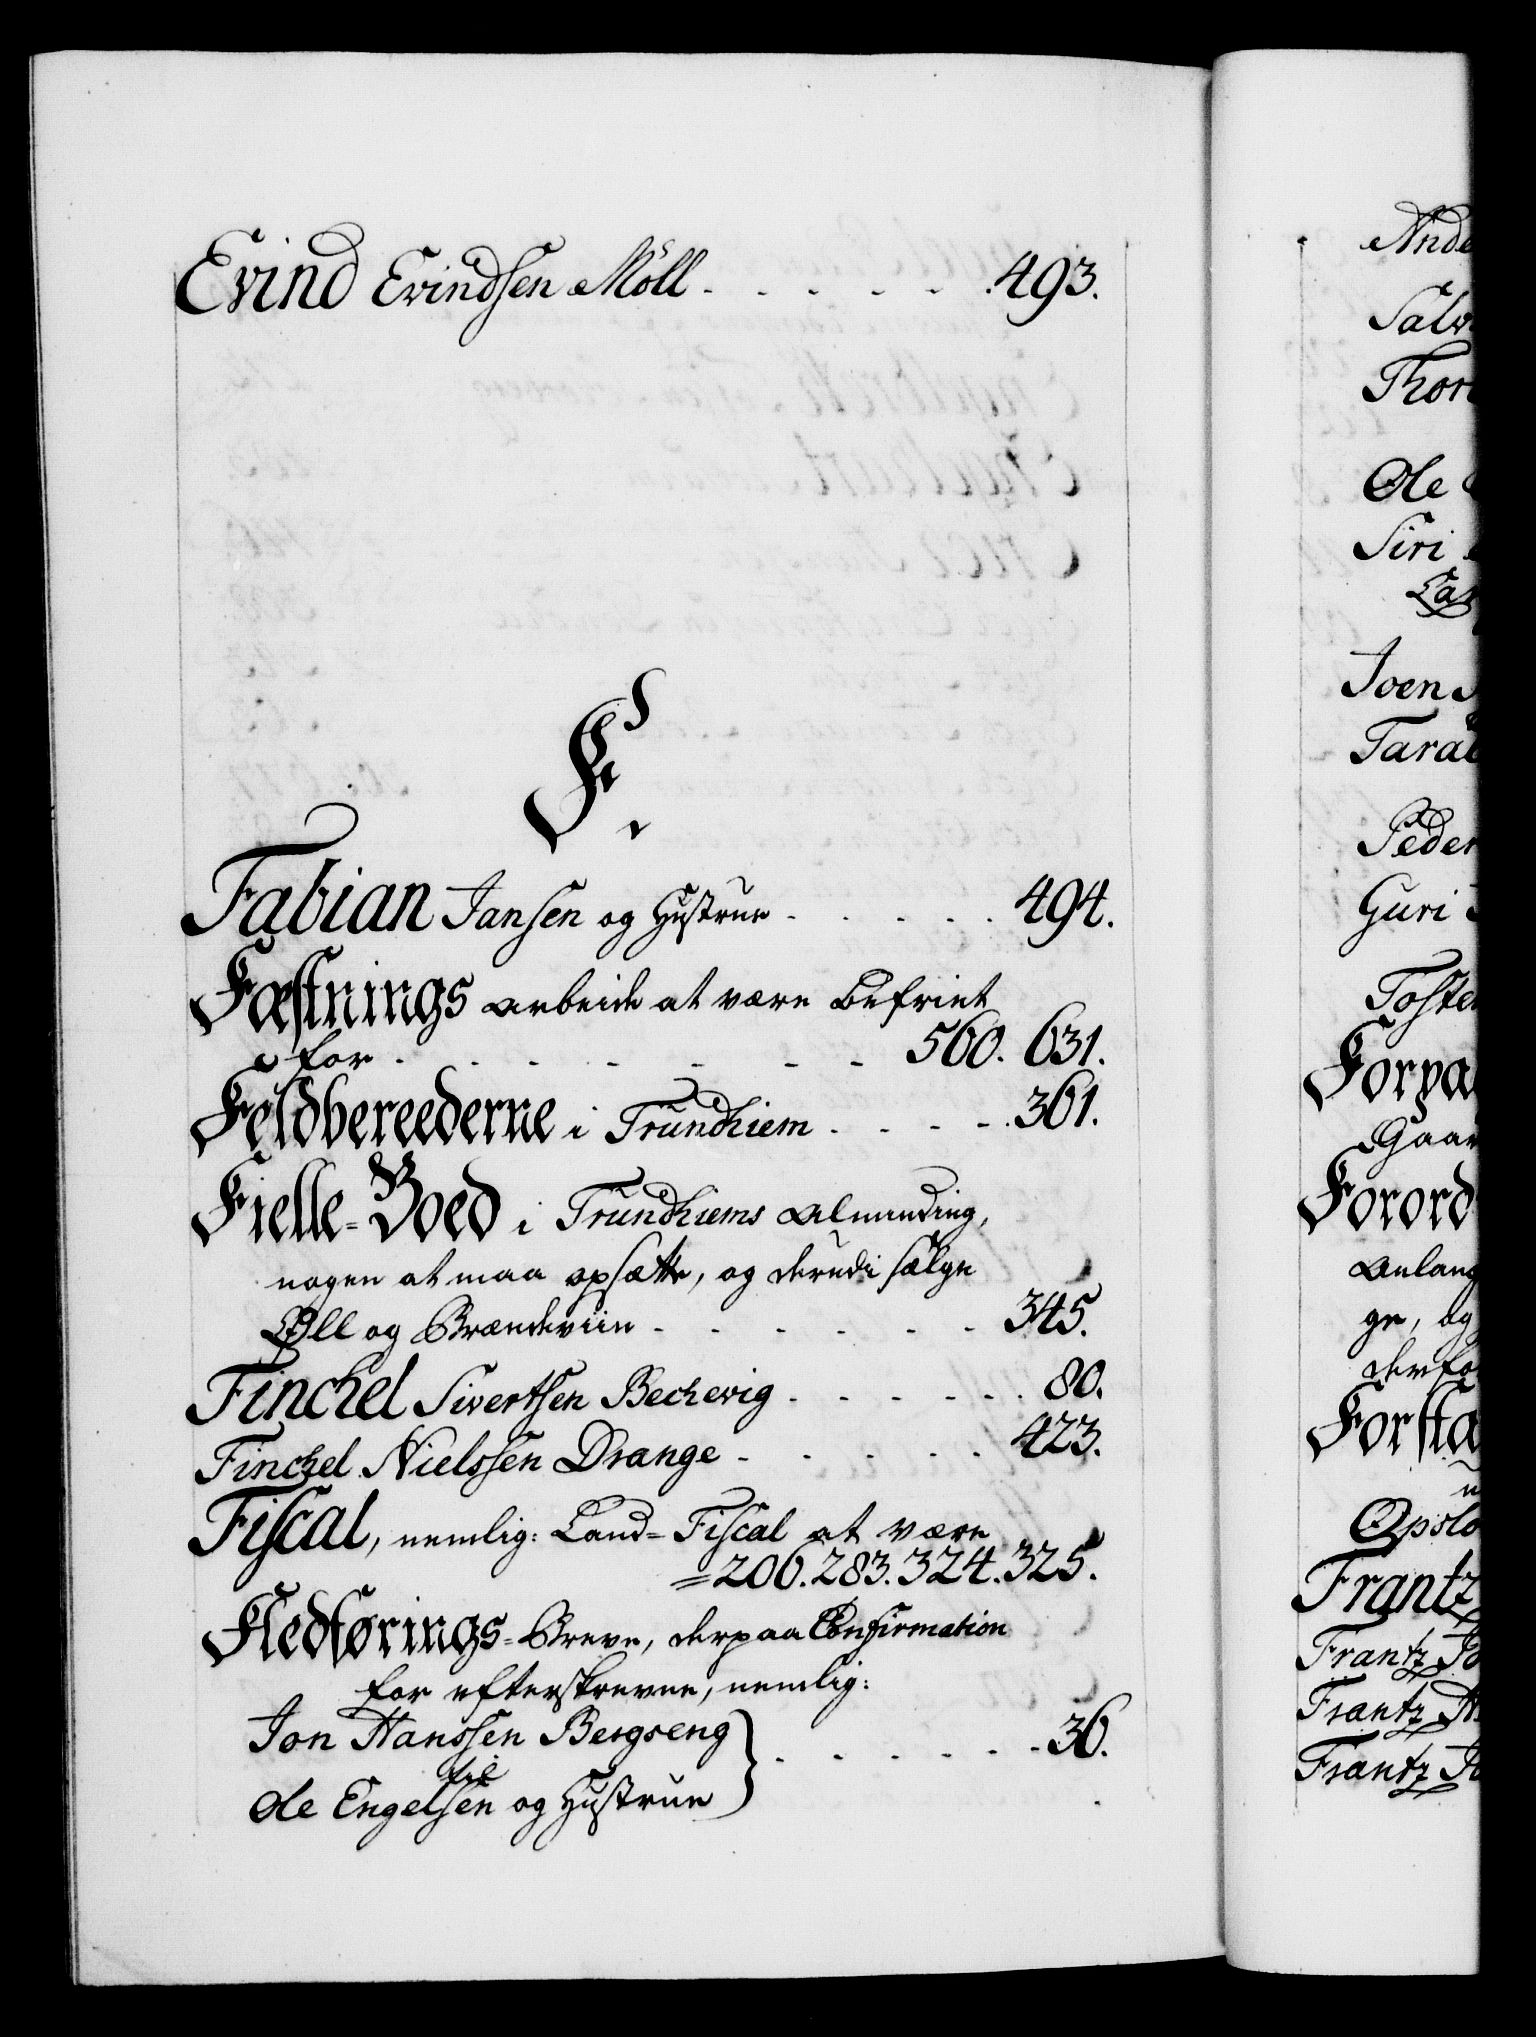 Evind Evindsen Möll - - - - - - 493.
F.
Fabian Jansen og Hustrue - - - - - 494.
Fæstnings arbeide at være befriet
for - - - - - - - - 560. 631.
Feldbereederne i Trundhiem - - - - 361.
Fielle-Boed i Trundhiems Alminding,
nogen at maa opsætte, og derudi sælge
Øll og Brændeviin - - - - - - - 345.
Finchel Sivertsen Bechevig - - - - - 80.
Finchel Nielssen Drange - - - - - - 423.
Fiscal, nemlig: Land-Fiscal at være
= 206. 283. 324. 325.
Fledførings-Breve, derpaa Confirmation
for efterskrevne, nemlig:
Jon Hanssen Bergseng
til
Ole Engelsen og Hustrue } - - - - - - 36.
Ande
Salv
Thor
Ole
Siri
Lar
Joen
Taral
Peder
Guri
Tosten
Forpa
Gaar
Forord
Anlang
ge, og
derfo
Forsta
Opslo
Frantz
Frantz Jo
Frantz
Frantz